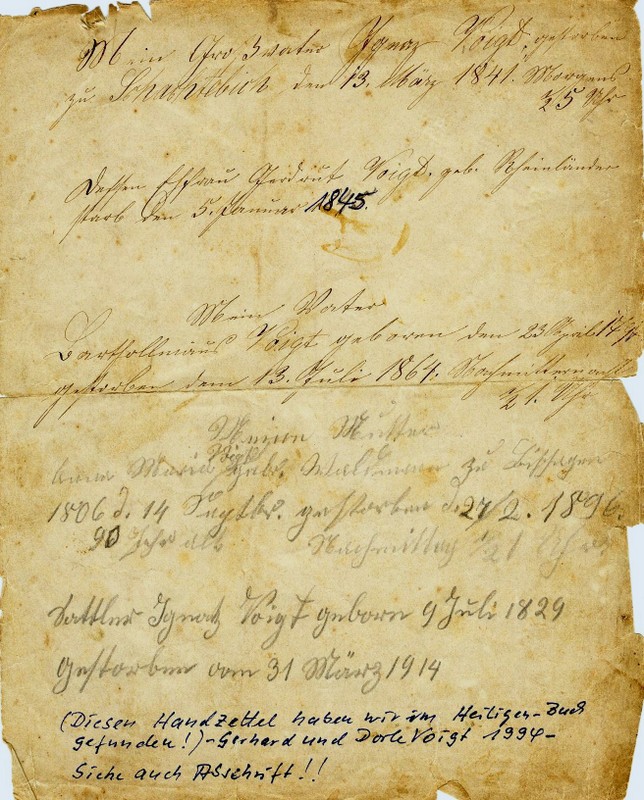 Mein Großvater Ignaz Voigt, gestorben
zu den 13. März 1841. Morgens
½ 5 Uhr
Dessen Ehfrau Gerdrut Voigt, geb. Rheinländer
starb den 5. Januar 1845.
Mein Vater
Bartholлmäus Voigt geboren den 23
gestorben dem 13. Juli 1864. Nachmitternacht
½ 1. Uhr
Meine Mutter
Anna Maria Voigt geb. Waldmann zu
1806 d. 14 Septbr. gestorben d. 27/2. 1896.
90 Jahr alt Nachmittag ½ 1 Uhr.
Sattler Ignatz Voigt geborn 9 Juli 1829
Gestorben am 31 März 1914
(Diesen Handzettel haben wir im Heiligen-Buch
gefunden!)-Gerhard und Dorle Voigt 1994-
Siehe auch Abschrift!!